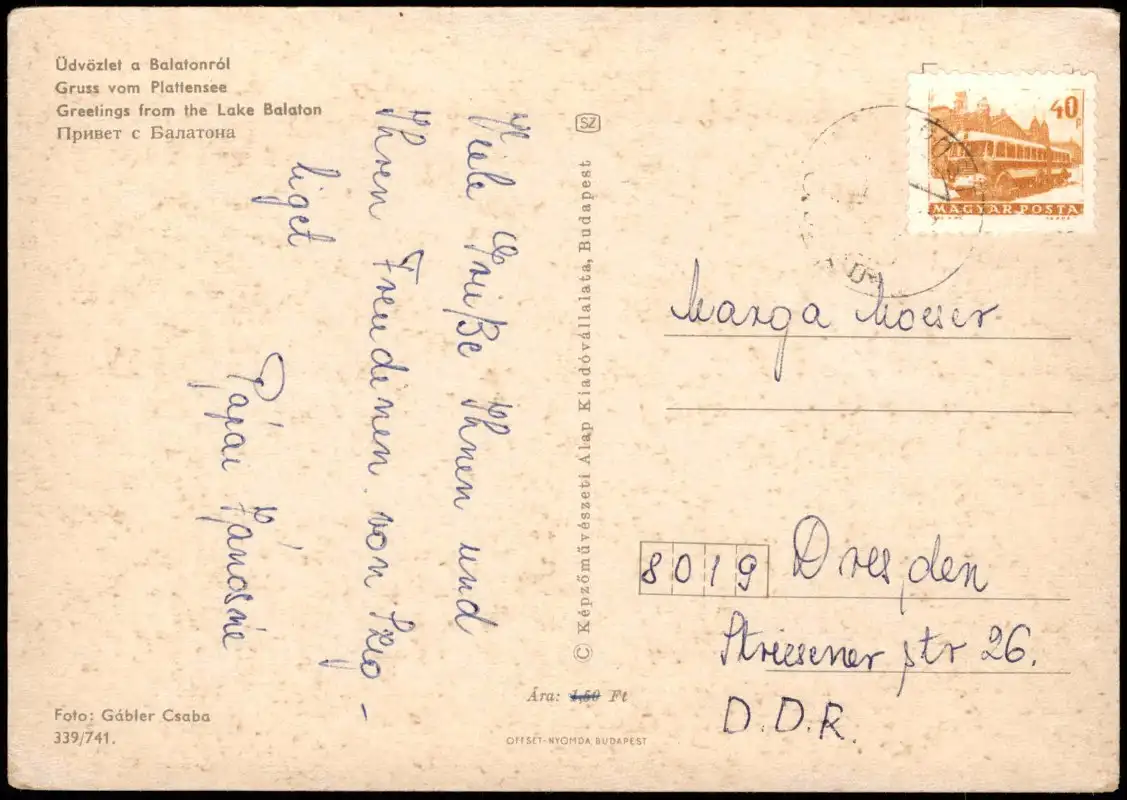 Üdvözlet a Balatonról
Gruss vom Plattensee
Greetings from the Lake Balaton
Привет с Балатона
Viele Grüße Ihnen und
Ihren Freudinen von Szip-
liget
Pápai Jánosné
Foto: Gábler Csaba
339/741.
SZ
© Képzőművészeti Alap Kiadóvállalata, Budapest
Ára: 1,50 Ft
OFFSET-NYOMDA, BUDAPEST
40f
MAGYAR POSTA
Marga Mocser
8019 Dresden
Striesener str 26.
D.D.R.